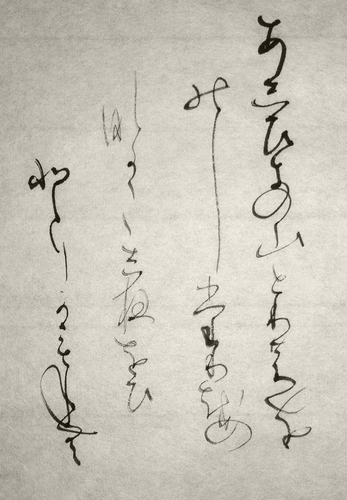 あしひきの山とりのを
のしたり越の
なか〱し夜をひ
とりかもねむ